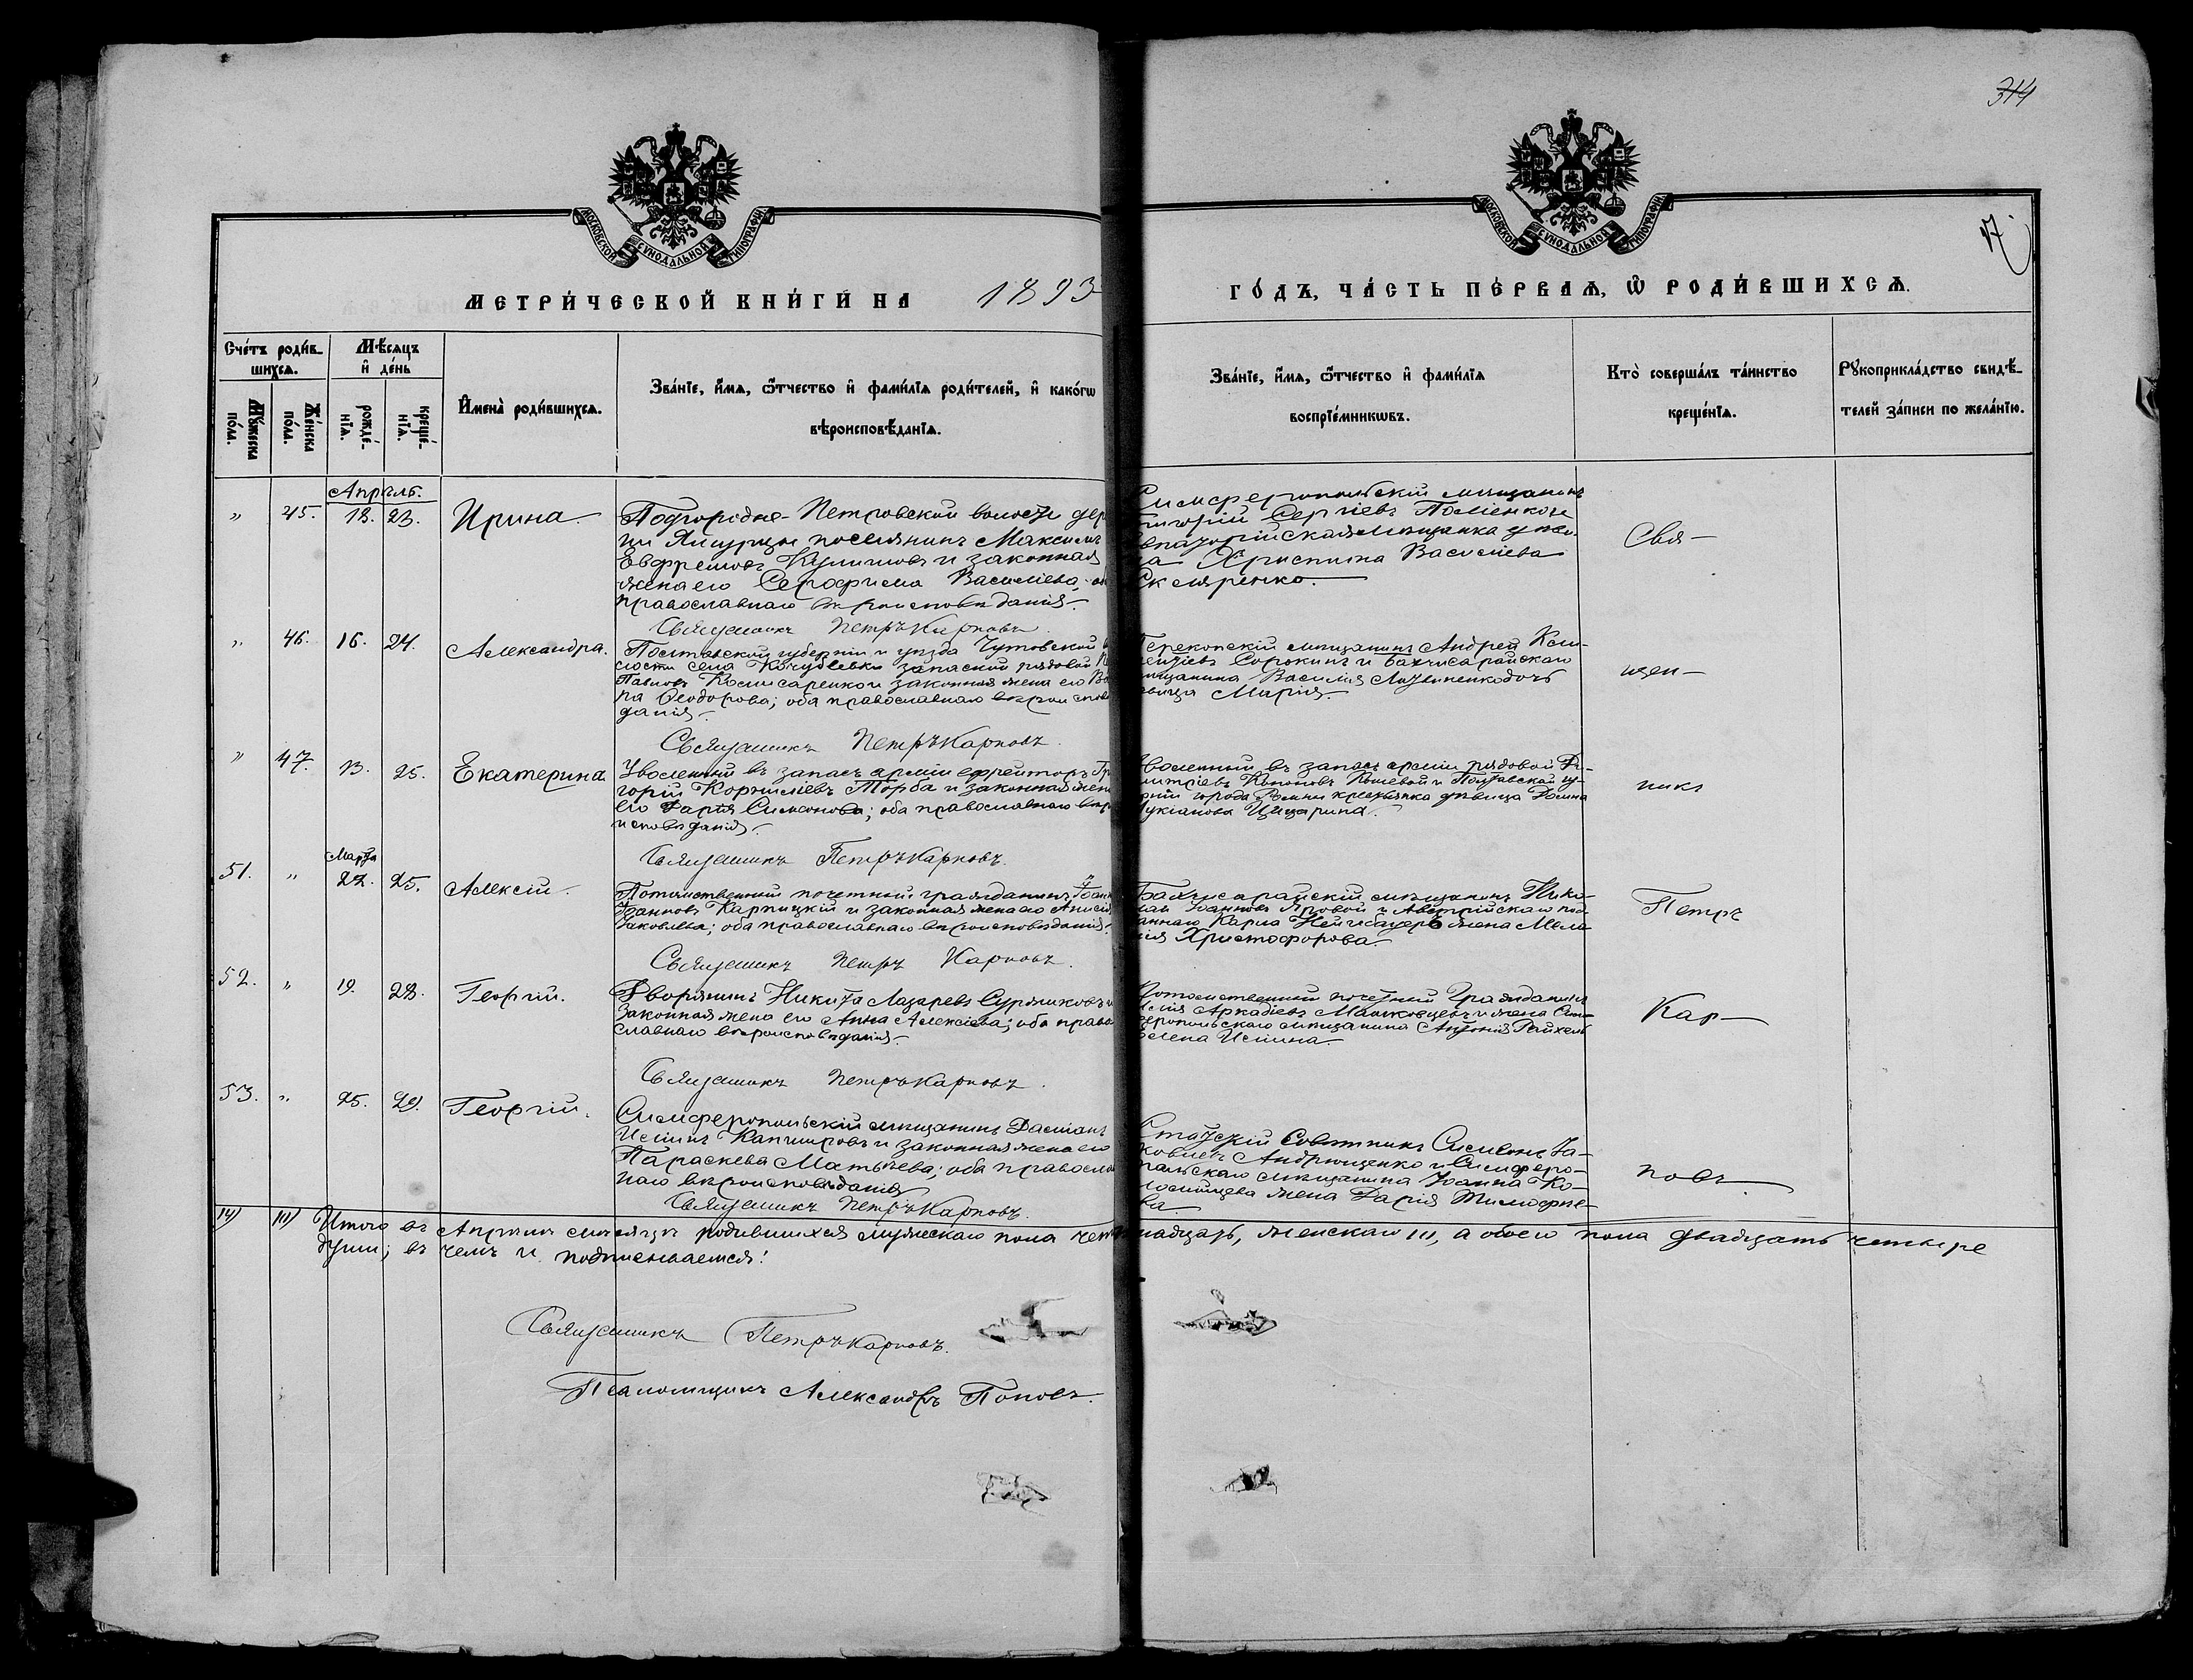 314
17
МОСКОВСКОЙ СѴНОДАЛЬНОЙ ТИПОГРАФІИ
МОСКОВСКОЙ СѴНОДАЛЬНОЙ ТИПОГРАФІИ
МЕТРИ́ЧЕСКОЙ КНИ́ГИ НА 1893
ГО́ДЪ, ЧА́СТЬ ПЕ́РВАѦ, Ѽ РОДИ́ВШИХСѦ.
Сче́тъ роди́в-
шихсѧ.
Мѣ́сѧцъ
и҆ де́нь
Мꙋ́жеска
по́ла.
Же́нска
по́ла.
рожде́-
нїѧ.
креще́-
нїѧ.
И҆мена̀ роди́вшихсѧ.
Зва́нїе, и҆́мѧ, ѻ҆́тчество и҆ фами́лїѧ роди́телей, и҆ како́гѡ
вѣроисповѣ́данїѧ.
Зва́нїе, и҆́мѧ, ѻ҆́тчество и҆ фами́лїѧ
воспрїе́мникѡвъ.
Кто̀ соверша́лъ та́инство
креще́нїѧ.
Рꙋкоприкла́дство свидѣ́-
телей за́писи по жела́нїю.
Апрѣль.
" 45. 18. 23. Ирина.
Подгородне-Петровской волости дер
ни поселянинъ Максимъ
Евфремовъ Куличовъ и законная
жена его Серафима Василіева,
православнаго вѣроисповѣданія.
Священникъ Петръ Карповъ.
Симферопольскій мѣщанинъ
Григорій Сергіевъ
впаторійская мѣщанка дѣви-
ца Христина Василіева
Скляренко.
Свя-
" 46. 16. 24. Александра.
Полтавской губерніи и уѣзда Чутовской
лости села Кочубеевки запасной рядовой
Павловъ Комисаренко и законная жена его Ва
ра Ѳеодорова; оба православнаго вѣроисповѣ
данія.
Священникъ Петръ Карповъ.
Перекопскій мѣщанинъ Андрей
Сорокинъ и Бахчисарайскаго
мѣщанина Василія Литвиненко дочь
дѣвица Марія.
щен-
" 47. 13. 25. Екатерина
Уволенный въ запасъ арміи ефрейторъ Гри
горій Корниліевъ Торба и законная жена
его Дарія Симеонова; оба православнаго вѣро
исповѣданія.
Священникъ Петръ Карповъ.
воленный въ запасъ арміи рядовой Ди-
митріевъ Кононовъ Кошевой и Полтавской гу-
рніи города Ромны крестьянка дѣвица Домна
Лукіанова
никъ
51. " Марта 22. 25. Алексій.
Потомственный почетный гражданинъ Іоаннъ
Іоанновъ Карпицкій и законная жена его Анисія
Іаковлева; оба православнаго вѣроисповѣданія.
Священникъ Петръ Карповъ.
Бахчисарайскій мѣщанинъ Нико-
лай Іоанновъ Яровой и Австрійскаго под-
даннаго Карла Нейгебауеръ жена Мела
нія Христофорова.
Петръ
52. " 19. 28. Георгій.
Дворянинъ Никита Лазаревъ Суражиковъ и
законная жена его Анна Алексіева; оба право
славнаго вѣроисповѣданія.
Священникъ Петръ Карповъ.
Потомственный почетный гражданинъ
Аркадіевъ и жена Сим-
феропольскаго мѣщанина Антонія Рейхель
Елена Исаина.
Кар-
53. " 25. 29. Георгій.
Симферопольскій мѣщанинъ Даміанъ
Капшировъ и законная жена его
Параскева Матѳіева; оба православ
наго вѣроисповѣданія
Священникъ Петръ Карповъ.
Статскій Совѣтникъ Симеонъ Іа-
ковлевъ Андрющенко и Симферо-
польскаго мѣщанина Іоанна Ко-
ломийцева жена Дарія Тимоѳие-
ва.
повъ.
14) 10) Итого въ Апрѣлѣ мѣсяцѣ родившихся мужскаго пола четырнадцать, женскаго 10, а обоего пола двадцать четыре
души; въ чемъ и подписываемся:
Священникъ Петръ Карповъ.
Псаломщикъ Александръ Поповъ.